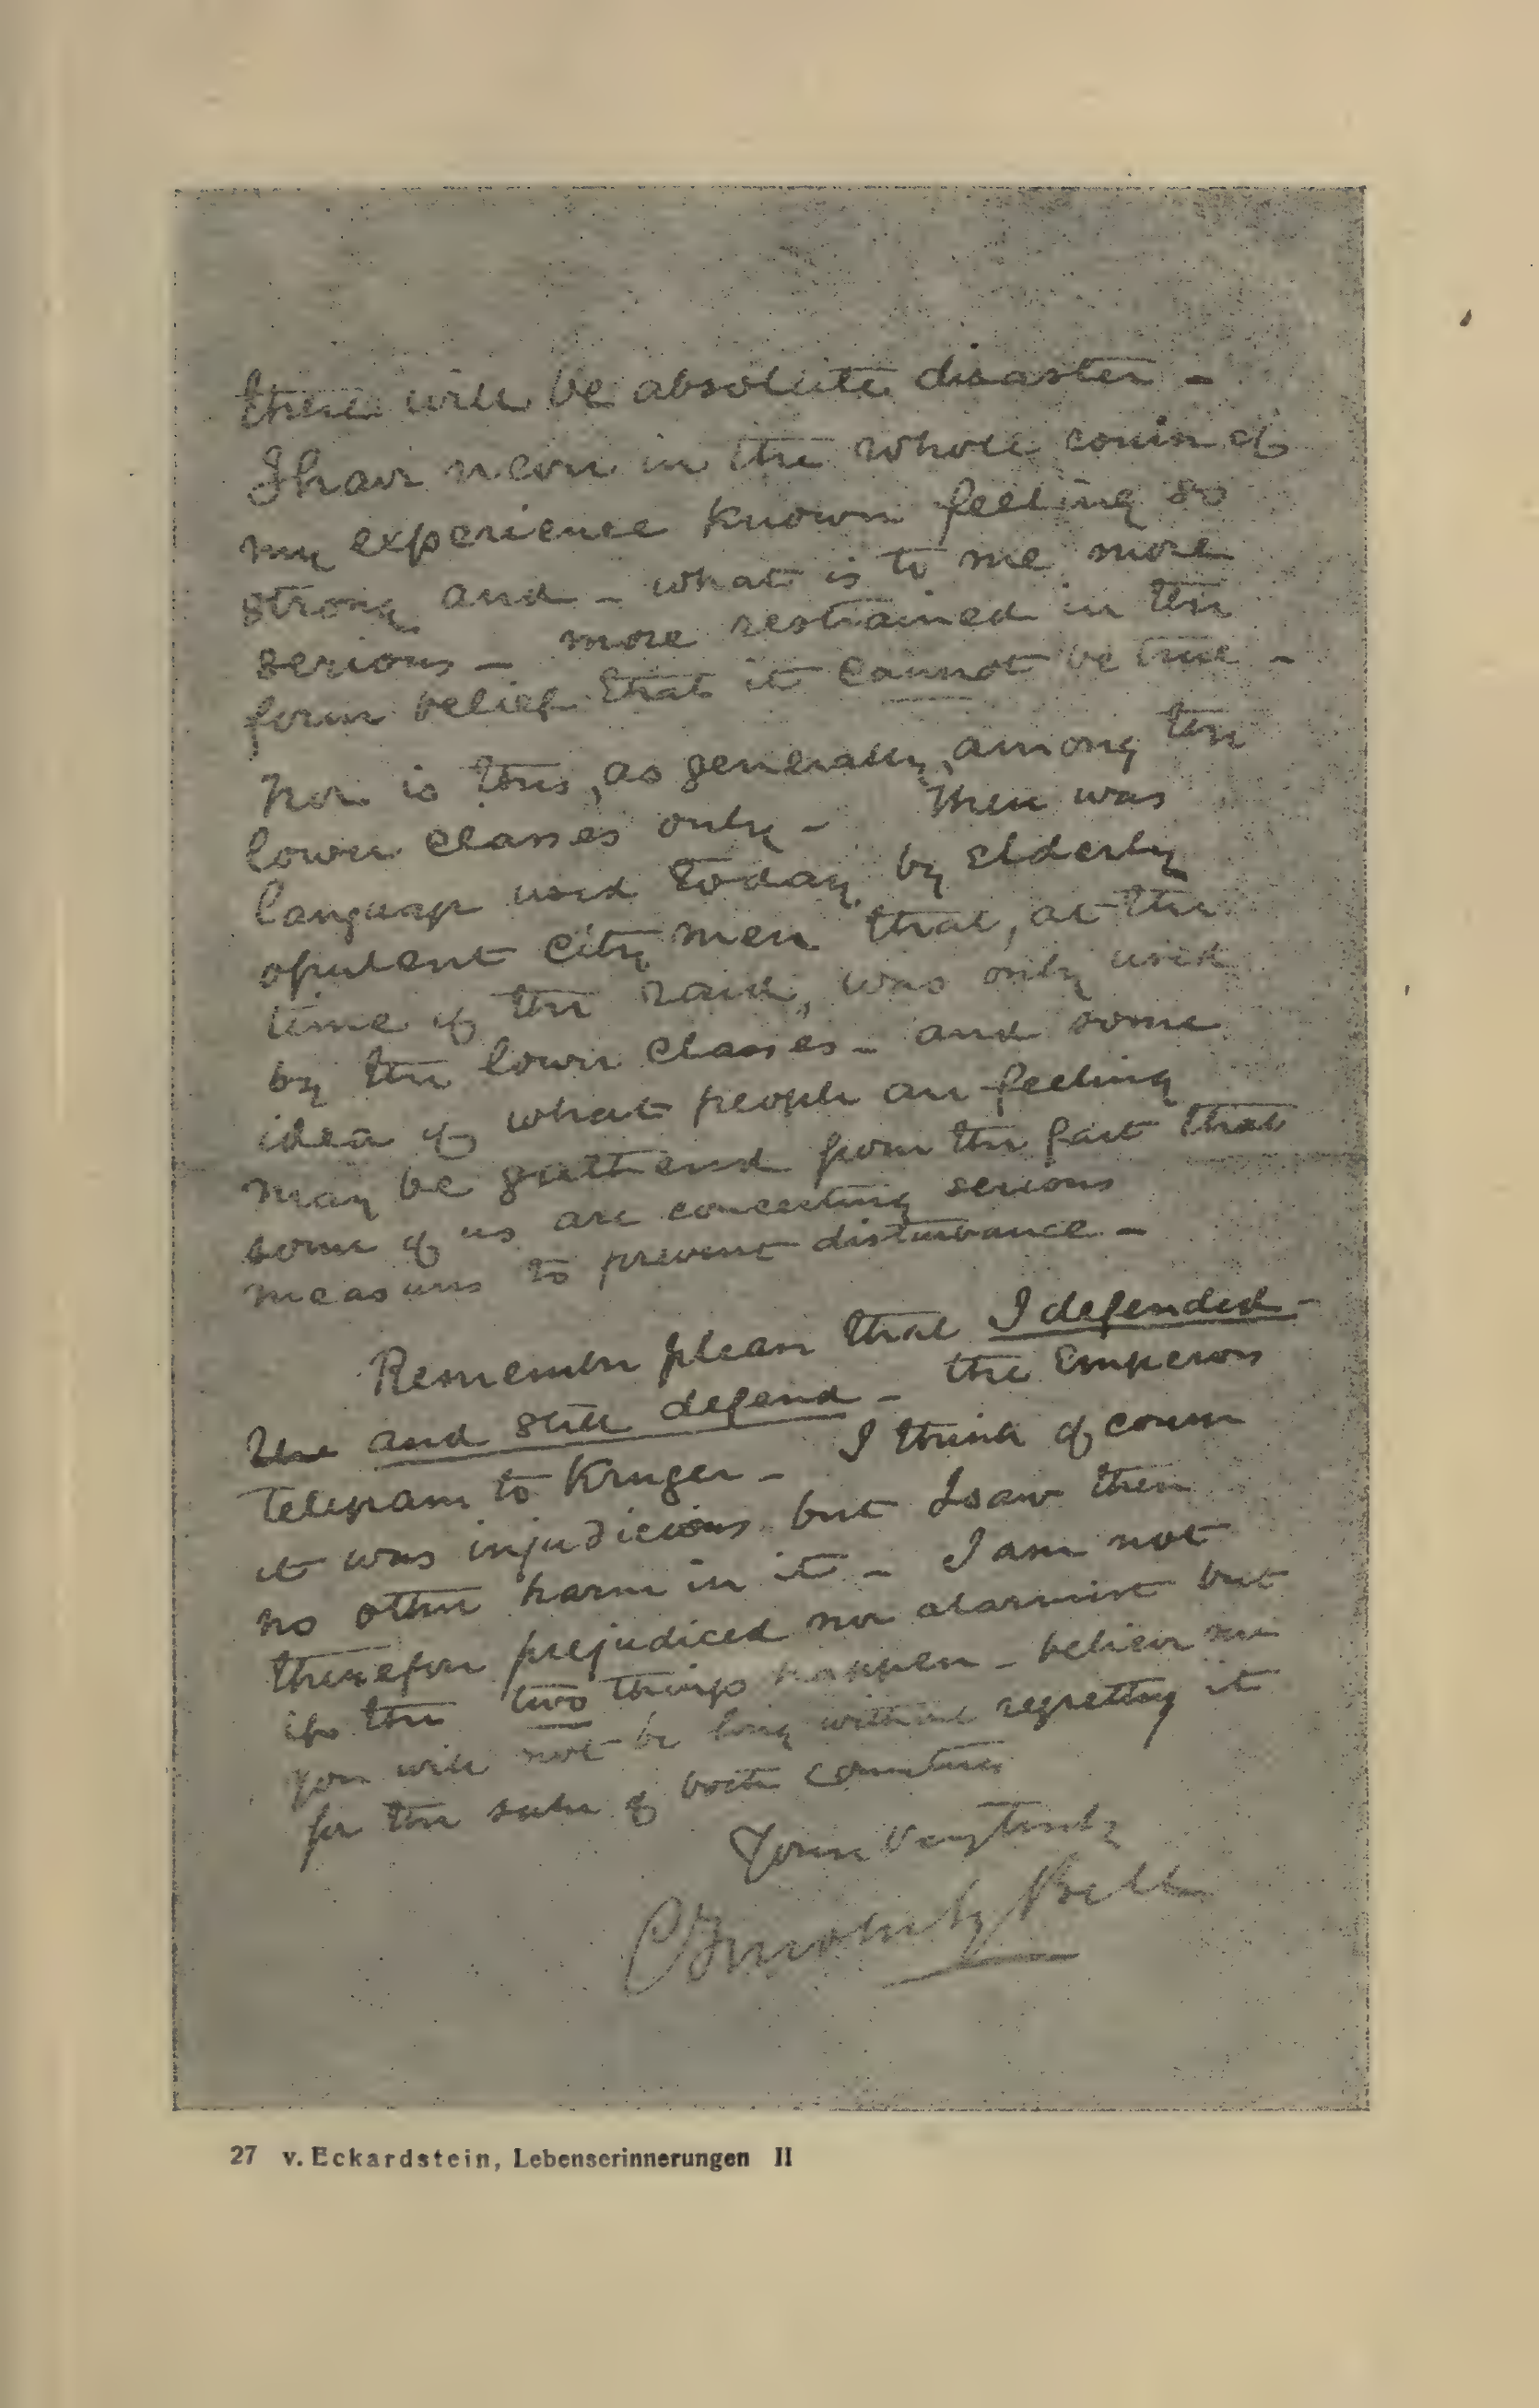 there will be absolute disaster -
I have never in the whole course of
my experience known feeling so
strong and - what is to me more
serious - more restrained in the
firm belief that it cannot be true -
Nor is this, as generally, among the
lower classes only - There was
language used today by elderly
opulent City men that, at the
time of the raid, was only used
by the lower classes - and some
idea of what people are feeling
may be gathered from the fact that
some of us are concerting serious
measures to prevent disturbance -
Remember please that I defended -
the and still defend - the Emperors
Telegram to Kruger - I think of course
it was injudicious but I saw then
no other harm in it - I am not
therefore prejudiced nor alarmist but
if the two things happen - believe me
you will not be long without regretting it
for the sake of both countries
Yours Very truly
C Moberly Bell
27 v. Eckardstein, Lebenserinnerungen II